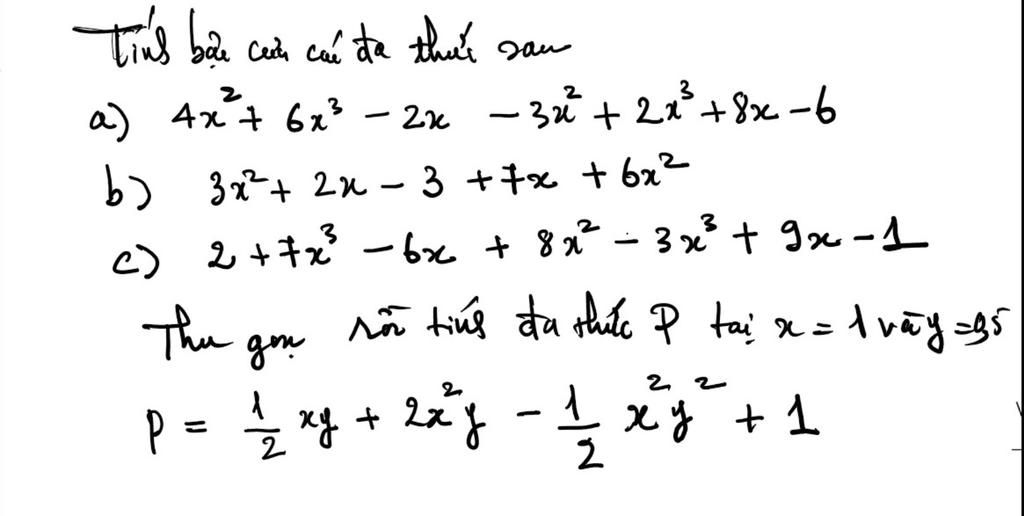 Tính bậc của các đa thức sau
a) 4x² + 6x³ - 2x - 3x² + 2x³ + 8x - 6
b) 3x² + 2x - 3 + 7x + 6x²
c) 2 + 7x³ - 6x + 8x² - 3x³ + 9x - 1
Thu gọn rồi tính đa thức P tại x = 1 và y =
P = 1/2 xy + 2x²y - 1/2 x²y² + 1